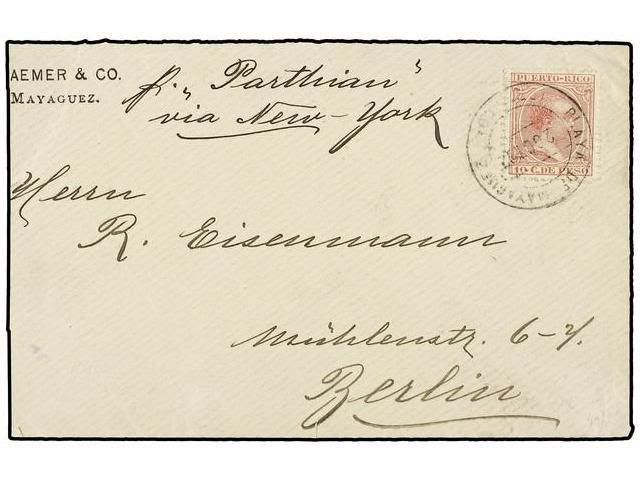 AEMER & CO.
MAYAGUEZ.
p. "Parthian"
via New-York
PUERTO-RICO
10 C. DE PESO
PLAYA DE MAYAGUEZ
Herrn
R. Eisenmann
Mühlenstr. 6-7.
Berlin